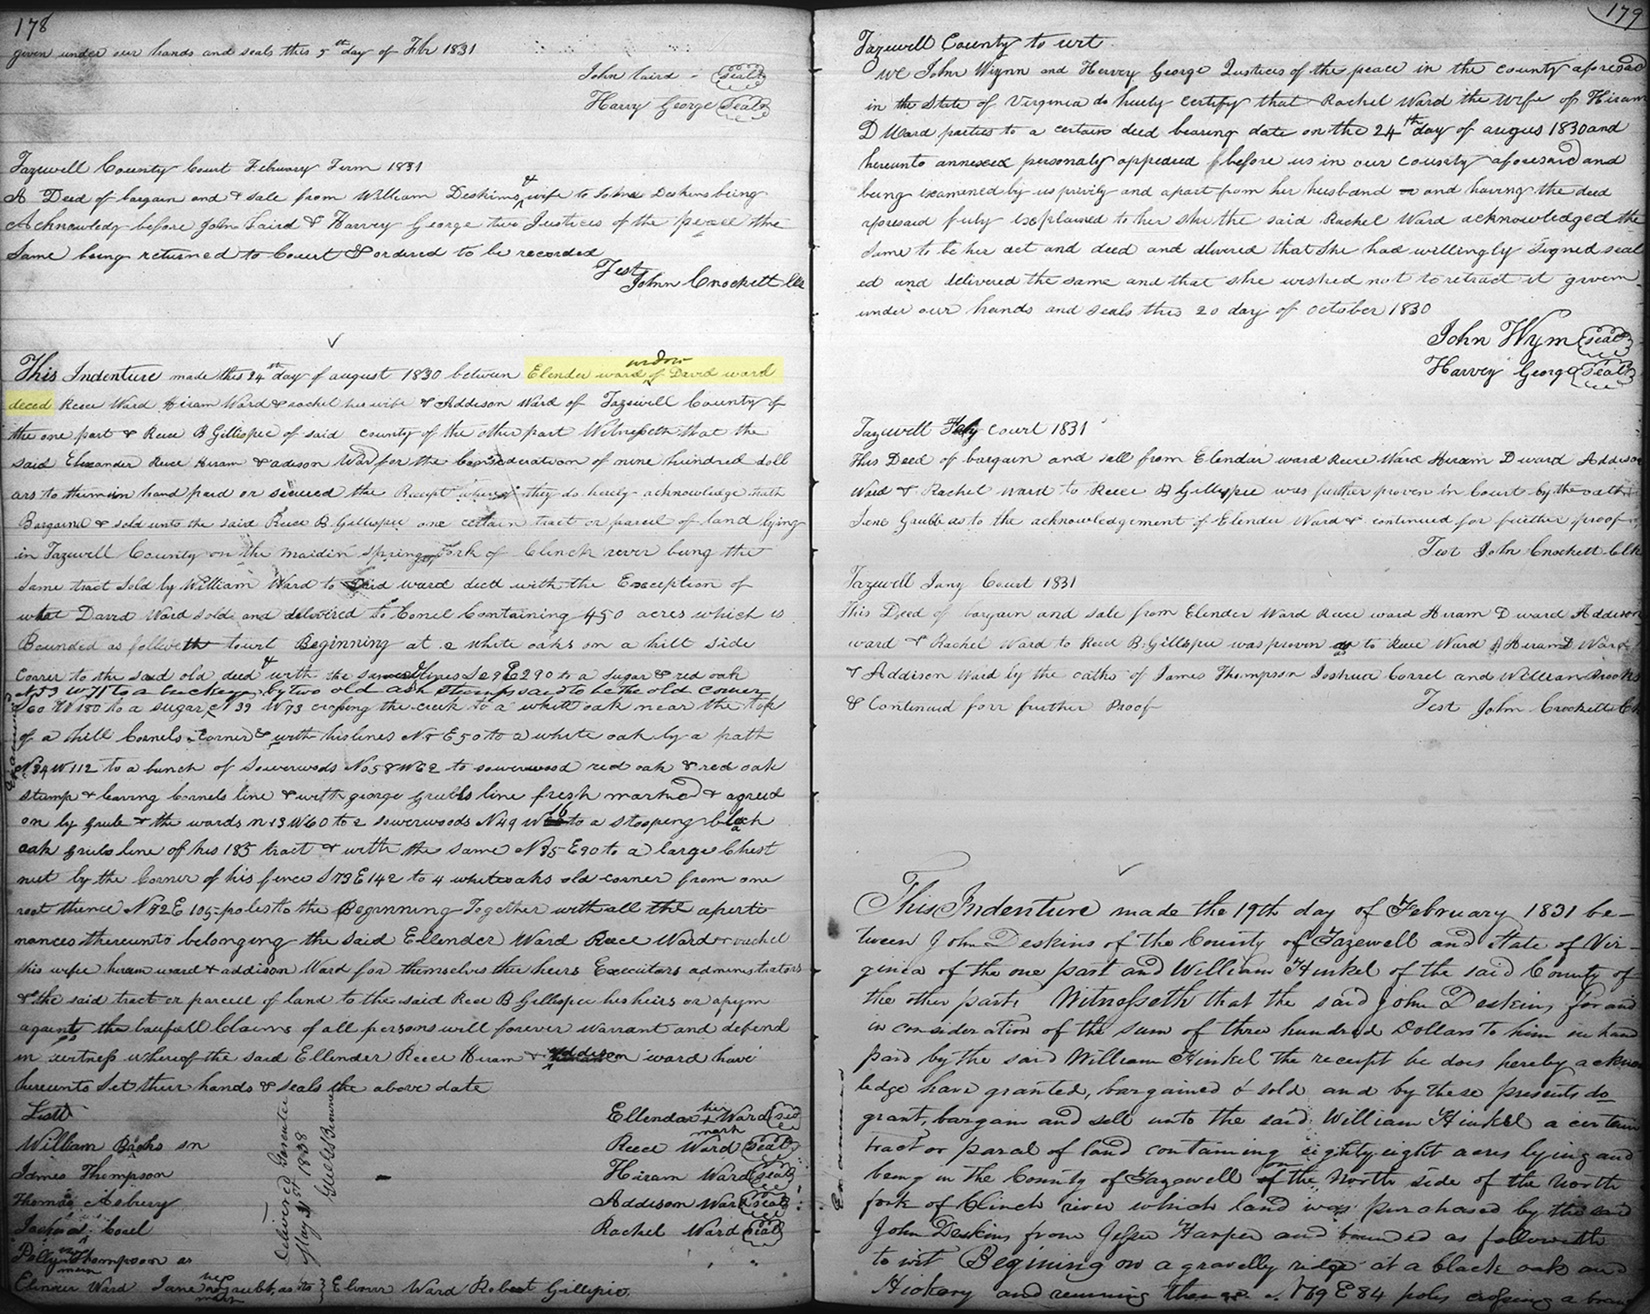 178
given under our hands and seals this 5th day of Feb 1831
John Laird - seal
Harvy George seal
Tazewell County Court February Term 1831
A Deed of bargain and & sale from William Deskins & wife to John Deskins being
Acknowledg before John Laird & Harvey George two Justices of the peace the
Same being returned to Court & ordered to be recorded
Test
John Crockett Clk
This Indenture made this 24th day of august 1830 between Elender ward widow of David ward
deced Reece Ward Hiram Ward & rachel his wife & Addison Ward of Tazewell County of
the one part & Reece B Gillispie of said county of the other part Witnesseth that the
said Elexander Reece Hiram & adison Ward for the Consideration of nine hundred doll
ars to them in hand paid or secured the Receipt whereof they do hereby acknowledge hath
Bargaind & sold unto the said Reece B Gillispie one certain tract or parcel of land lying
in Tazewell County on the maidin Spring Fork of Clinch river being the
same tract Sold by William Ward to David ward decd with the Exception of
what David Ward sold and delivered to Correl Containing 450 acres which is
Bounded as followeth towit Beginning at 2 white oaks on a hill side
Corner to the said old deed & with the lines S 29 E 290 to a sugar & red oak
N 53 W 71 to a buckeye by two old ash stumps said to be the old corner
S 60 W 180 to a sugar N 39 W 73 crossing the creek to a white oak near the top
of a hill Cornels Corner & with his lines N 8 E 50 to a white oak by a path
N 34 W 112 to a bunch of Sowerwoods No 58 W 62 to sowerwood red oak & red oak
stump & leaving Cornels line & with george Grubbs line fresh marked & agreed
on by Grubb & the wards n 13 W 60 to 2 sowerwoods N 49 W 16 to a stooping black
oak Grubs line of his 185 tract & with the same N 35 E 90 to a large Chest
nut by the Corner of his fence S 73 E 142 to 4 whiteoaks old corner from one
root thence N 72 E 105 poles to the Beginning Together with all the aperti
nances thereunto belonging the Said Ellender Ward Reece Ward & rachel
his wife hiram ward & addison Ward for themselves thee heirs Executors administrators
& the said tract or parcell of land to the said Reece B Gillispie his heirs or
against the Claims of all persons will forever warrant and defend
in witness whereof the said Ellender Reece Hiram & Addison ward have
hereunto Set their hands & seals the above date
Test
Ellendar her mark Ward seal
William Brooks sn
Reece Ward seal
James Thompson
Hiram Ward seal
Thomas Asbury
Addison Ward seal
Joshua Corel
Rachel Ward seal
Polly Thompson as
Elinor Ward Jane her mark Grubb, as to } Elinor Ward Robert Gillispie
Delivered
May 31st 1838
179
Tazewell County to wit
We John Wynn and Harvey George Justices of the peace in the county aforesaid
in the State of Virginia do hereby certify that Rachel Ward the wife of Hiram
D Ward parties to a certain deed bearing date on the 24th day of augus 1830 and
hereunto annexed personaly appeared before us in our county aforesaid and
being examined by us privily and apart from her husband and having the deed
aforesaid fully explained to her she the said Rachel Ward acknowledged the
same to be her act and deed and dlivered that she had willingly Signed seal
ed and delivered the same and that she wished not to retract it given
under our hands and seals this 20 day of October 1830
John Wynn seal
Harvey George seal
Tazewell Feby Court 1831
This Deed of bargain and sell from Elendar ward Reece Ward Hiram D ward Addison
Ward & Rachel Ward to Reece B Gillispie was further proven in Court by the oath
Jane Grubb as to the acknowledgement of Elender Ward & continued for further proof
Test John Crockett Clk
Tazewell Jany Court 1831
This Deed of bargain and sale from Elender Ward Reece ward Hiram D ward Addison
ward & Rachel Ward to Reece B Gillispie was proven as to Reece Ward Hiram D Ward
& Addison Ward by the oaths of James Thompson Joshua Correl and William Brooks
& Continued forr further Proof
Test John Crockett Clk
This Indenture made the 19th day of February 1831 be-
tween John Deskins of the County of Tazewell and State of Vir-
ginia of the one part and William Hinkel of the said County of
the other part, Witnesseth that the said John Deskins for and
in consideration of the sum of three hundred Dollars to him in hand
paid by the said William Hinkel the receipt he does hereby acknow
ledge have granted, bargained & sold and by these presents do
grant, bargain and sell unto the said William Hinkel a certain
tract or parcel of land containing eighty eight acres lying and
being in the County of Tazewell on the North side of the North
fork of Clinch river which land was purchased by the said
John Deskins from Jesse Harper and bounded as followeth
to wit Begining on a gravelly ridge at a black oak and
Hickory and running thence N 69 E 84 poles crossing a branch